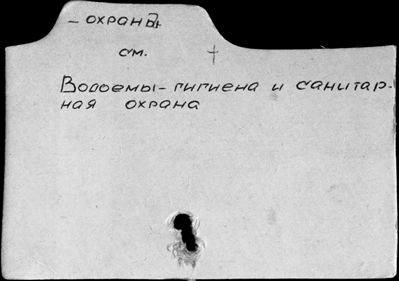 – ОХРАНЫ
см. †
Водоемы – гигиена и санитар-
ная охрана